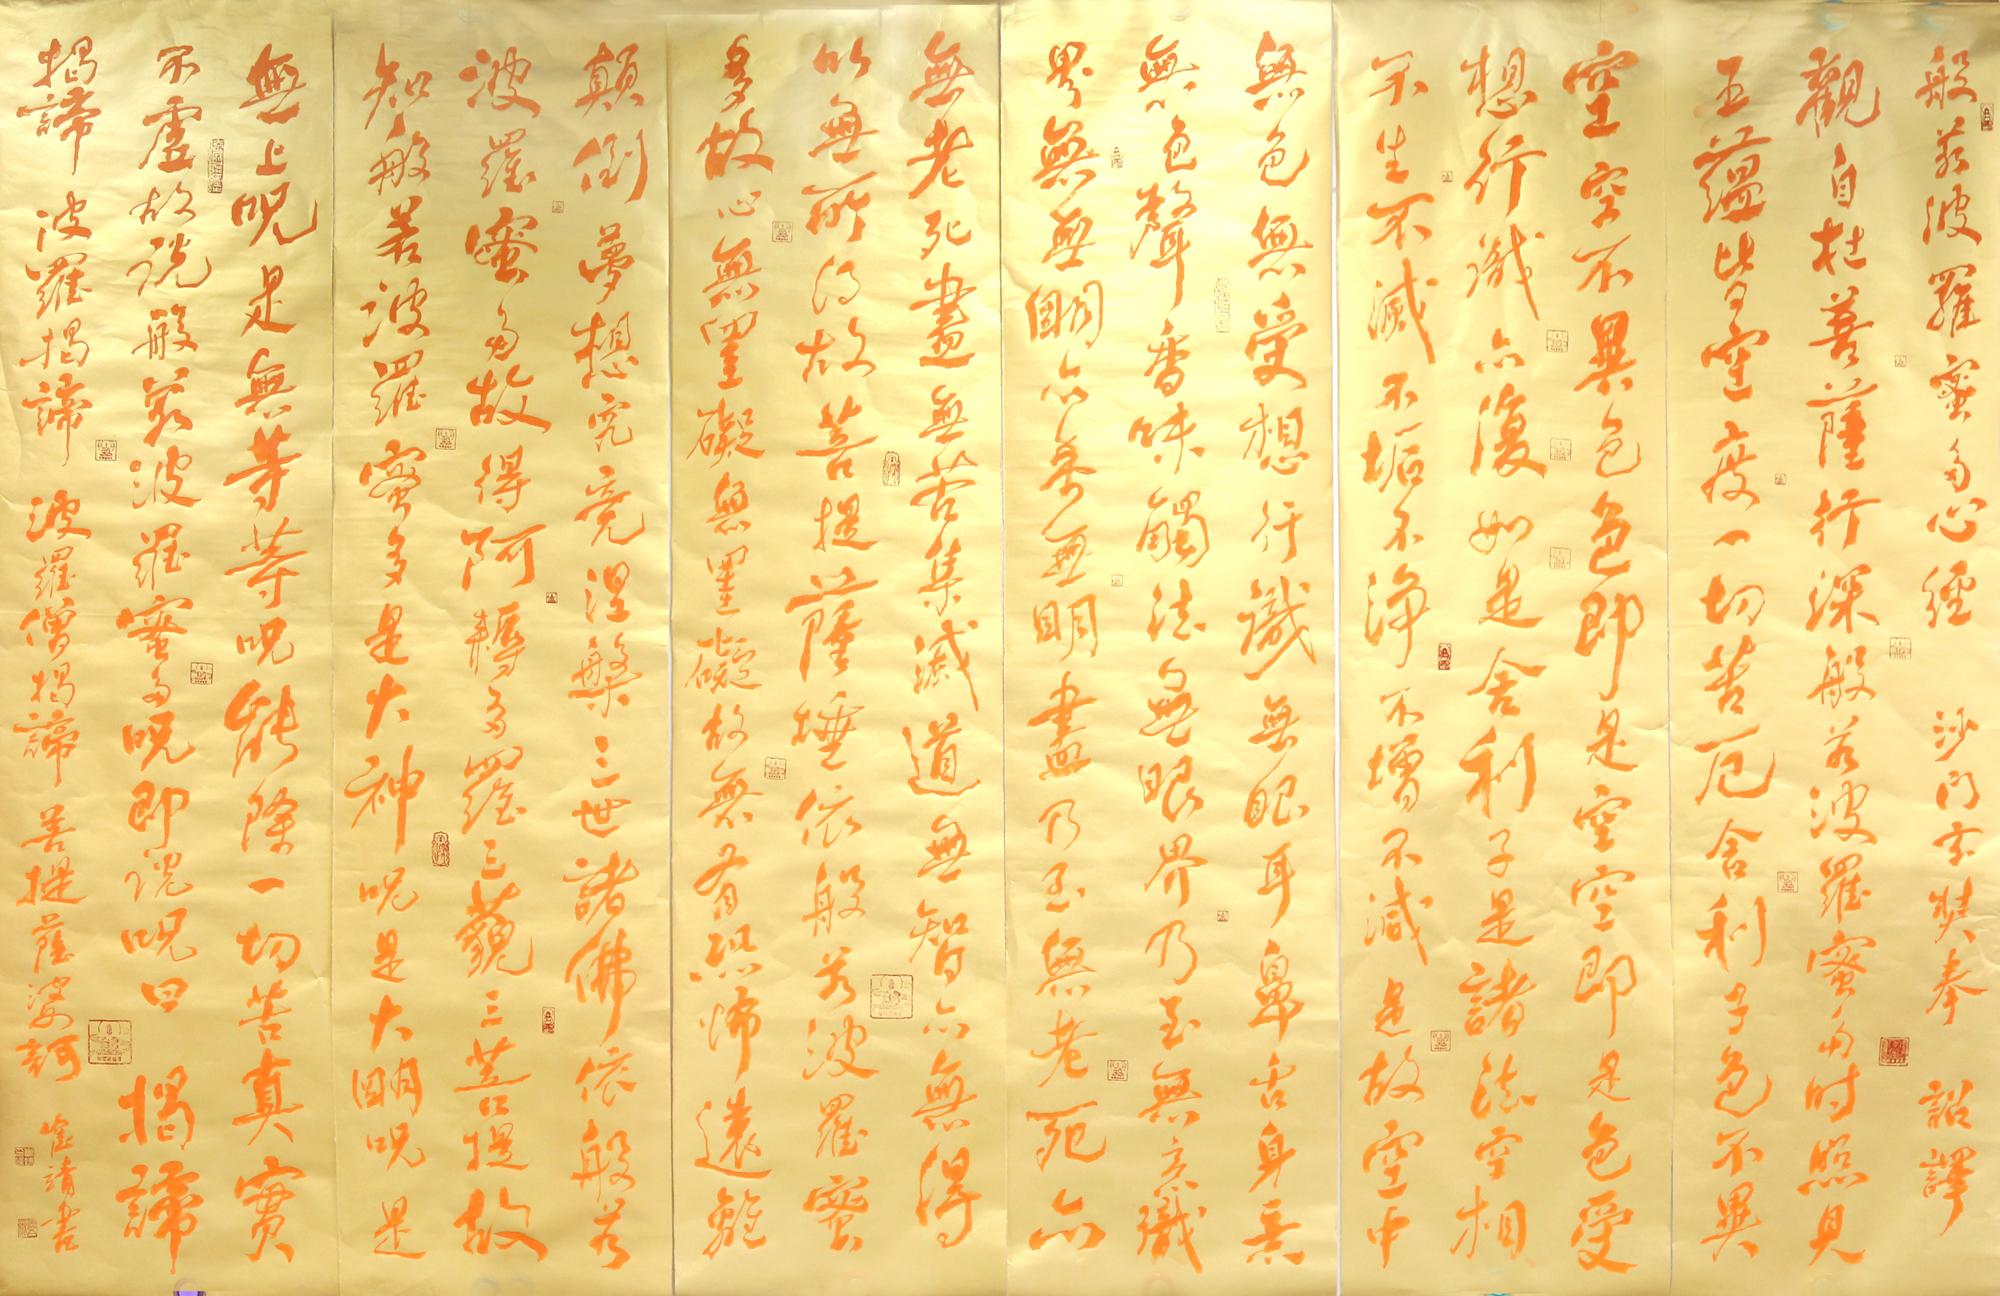 般若波羅蜜多心經 沙門玄奘奉 詔譯
觀自在菩薩行深般若波羅蜜多時照見
五蘊皆空度一切苦厄舍利子色不異
空空不異色色即是空空即是色受
想行識亦復如是舍利子是諸法空相
不生不滅不垢不淨不增不減是故空中
無色無受想行識無眼耳鼻舌身意
無色聲香味觸法無眼界乃至無意識
界無無明亦無無明盡乃至無老死亦
無老死盡無苦集滅道無智亦無得
以無所得故菩提薩埵依般若波羅蜜
多故心無罣礙無罣礙故無有恐怖遠離
顛倒夢想究竟涅槃三世諸佛依般若
波羅蜜多故得阿耨多羅三藐三菩提故
知般若波羅蜜多是大神呪是大明呪是
無上呪是無等等呪能除一切苦真實
不虛故說般若波羅蜜多呪即說呪曰 揭諦
揭諦 波羅揭諦 波羅僧揭諦 菩提薩婆訶 書